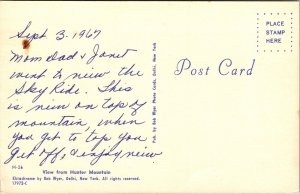 Sept 3. 1967
Mom Dad & Janet
went to new the
Sky Ride. This
is view on top of
mountain, when
you get to top you
get off, & enjoy view
H-26
View from Hunter Mountain
Ektachrome by Bob Wyer, Delhi, New York. All rights reserved.
17973-C
Pub. by Bob Wyer Photo Cards, Delhi, New York
Post Card
PLACE
STAMP
HERE